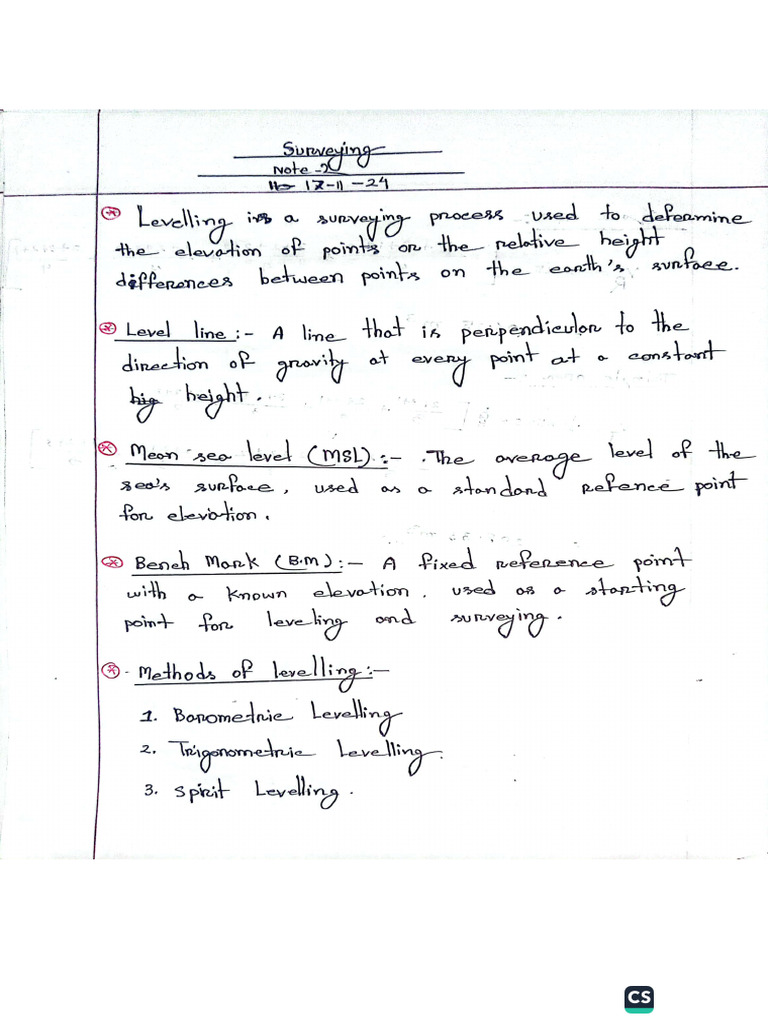 Surveying
Note-2
17-11-24
Levelling is a surveying process used to determine
the elevation of points or the relative height
differences between points on the earth's surface.
Level line :- A line that is perpendicular to the
direction of gravity at every point at a constant
height.
Mean sea level (MSL) :- The average level of the
sea's surface, used as a standard refence point
for elevation.
Bench Mark (B.M) :- A fixed reference point
with a known elevation. used as a starting
point for leveling and surveying.
Methods of levelling :-
1. Barometric Levelling
2. Trigonometric Levelling.
3. Spirit Levelling.
CS